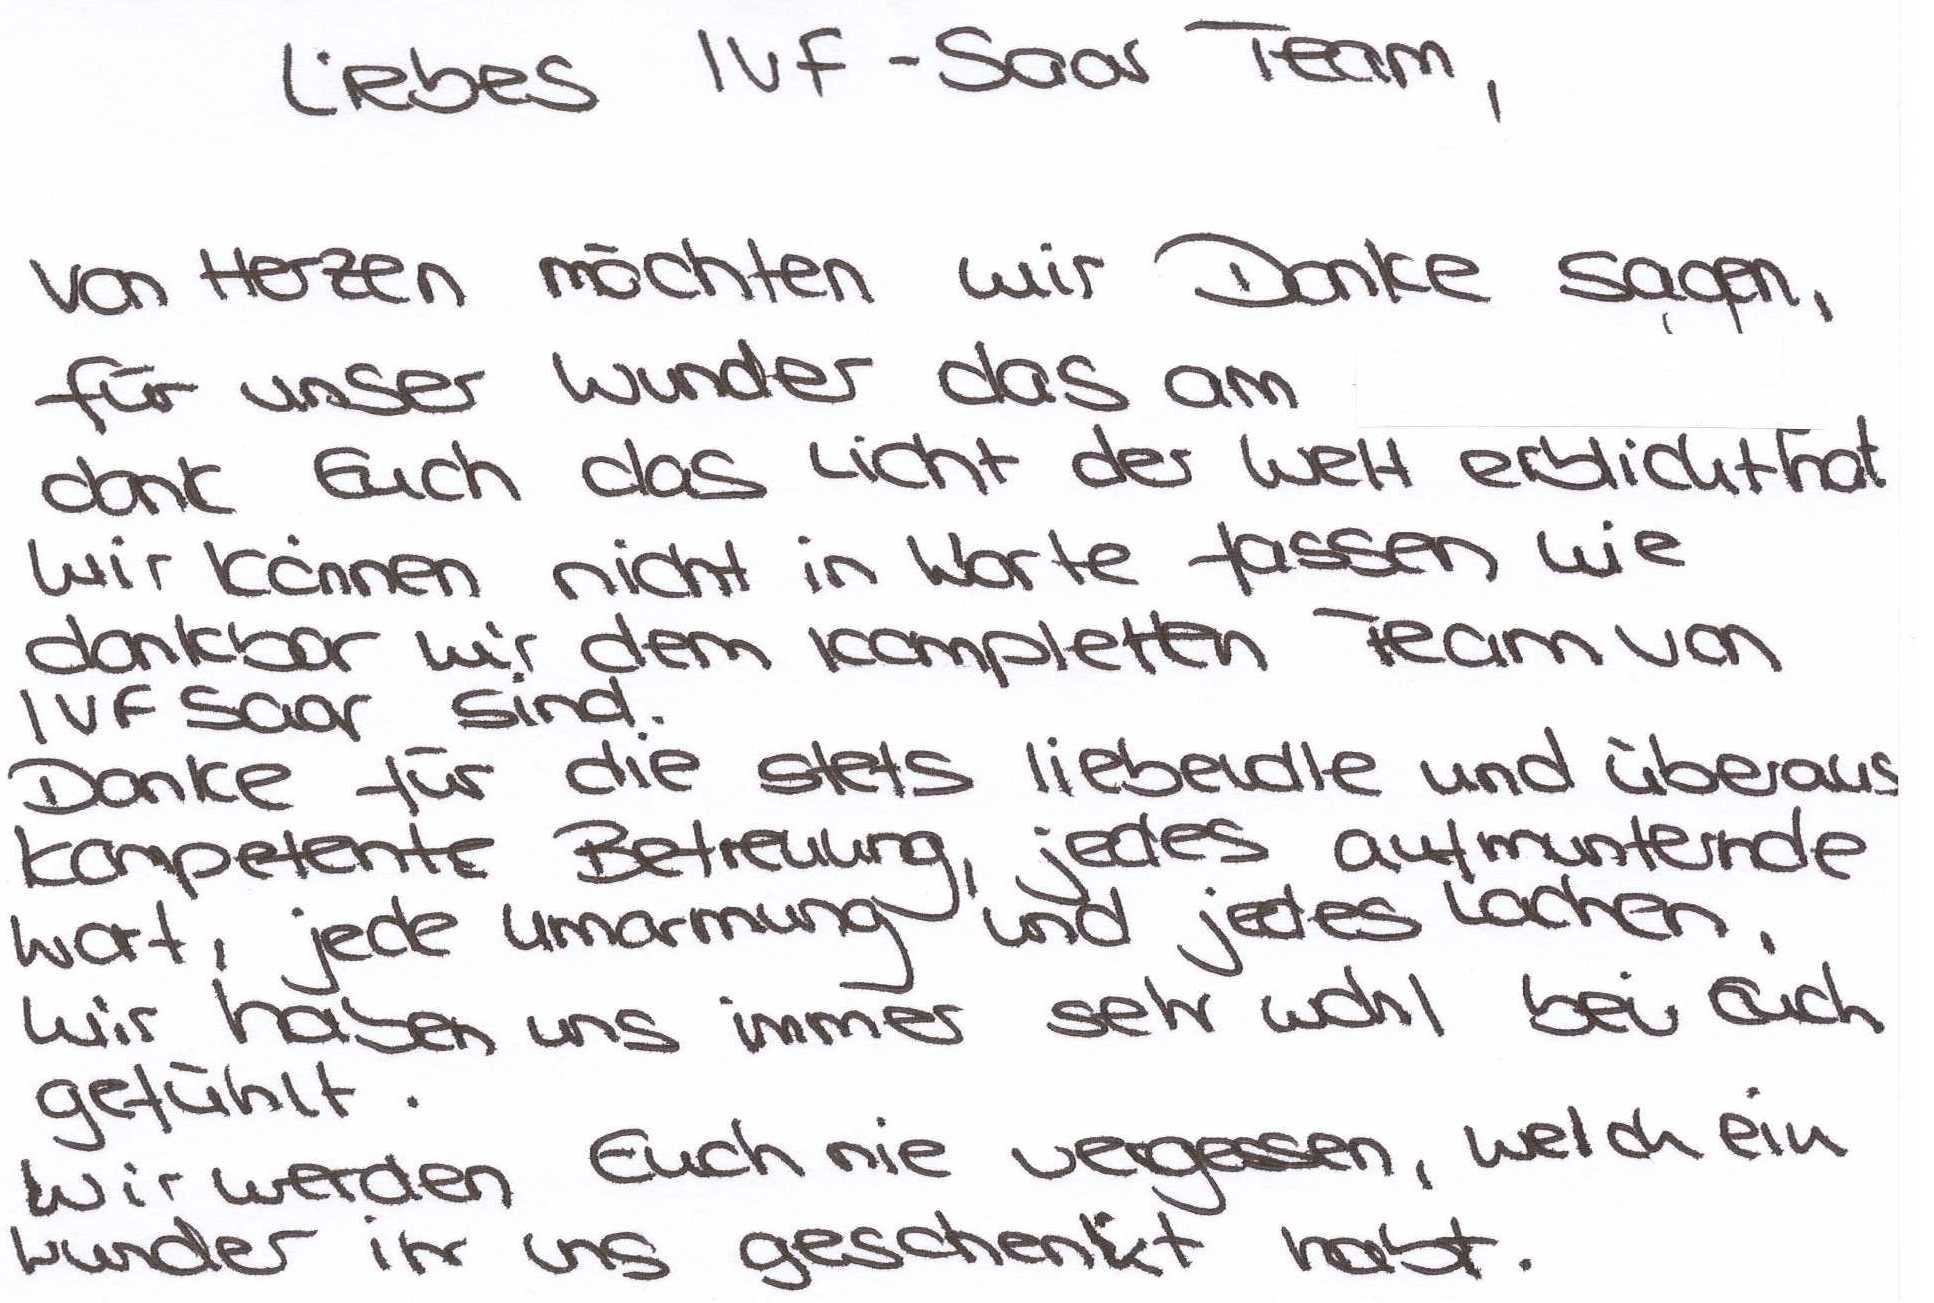 Liebes IVF-Saar Team,
von Herzen möchten wir Danke sagen,
für unser Wunder das am
dank Euch das Licht der Welt erblickt hat
Wir können nicht in Worte fassen wie
dankbar wir dem kompletten Team von
IVF Saar sind.
Danke für die stets liebevolle und überaus
kompetente Betreuung, jedes aufmunternde
Wort, jede Umarmung und jedes Lachen,
Wir haben uns immer sehr wohl bei Euch
gefühlt.
Wir werden Euch nie vergessen, welch ein
Wunder ihr uns geschenkt habt.